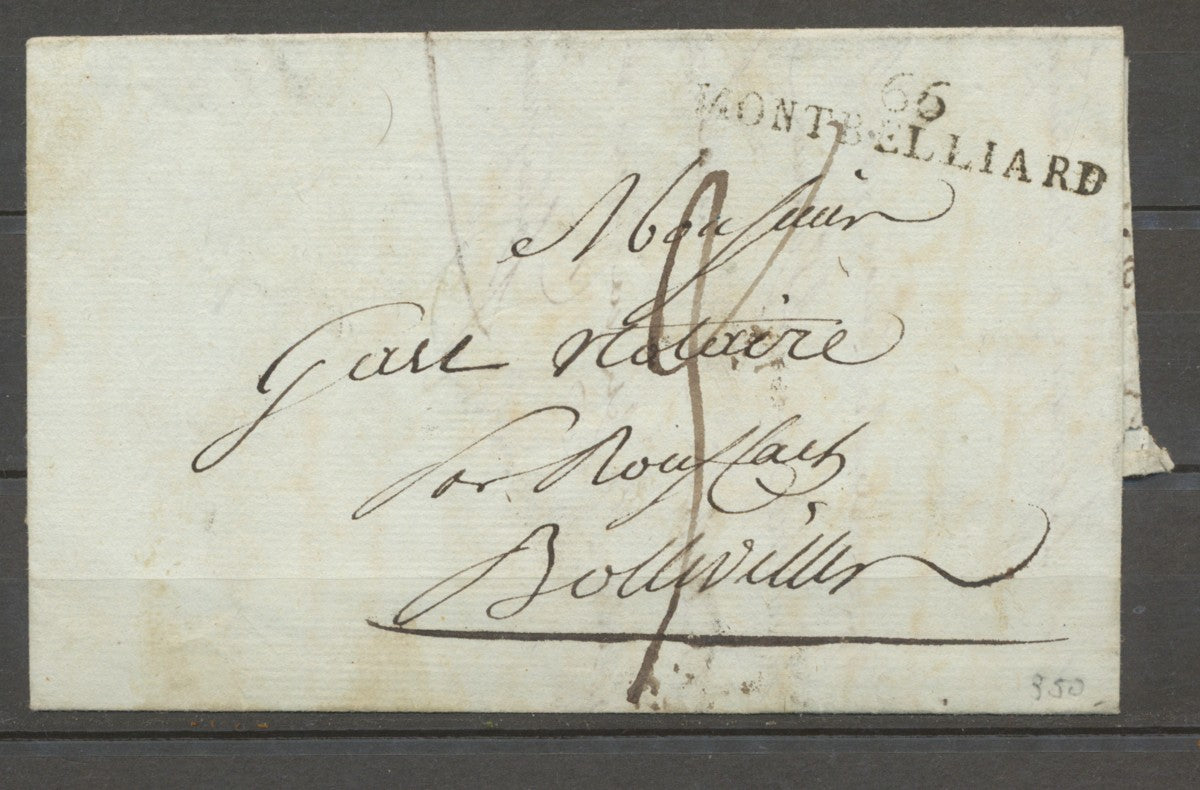 66
MONTBELLIARD
Monsieur
notaire
Rouffach
Bollwiller